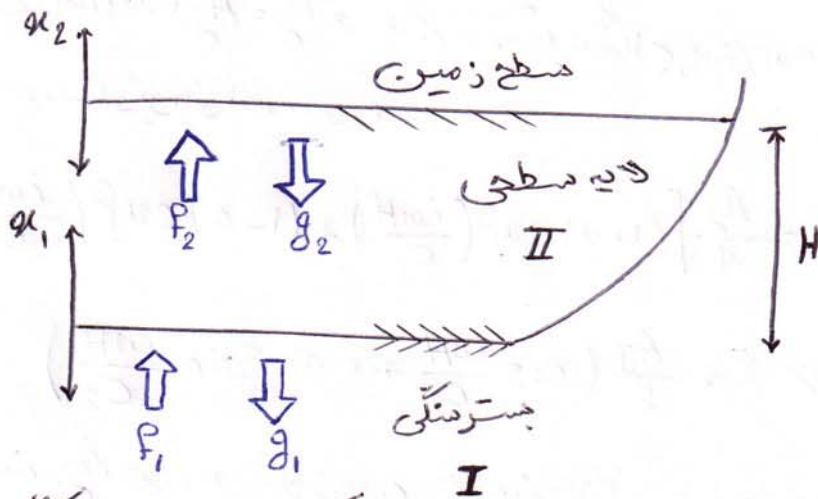 x₂
سطح زمین
f₂
g₂
لایه سطحی
II
H
x₁
f₁
g₁
بستر سنگی
I